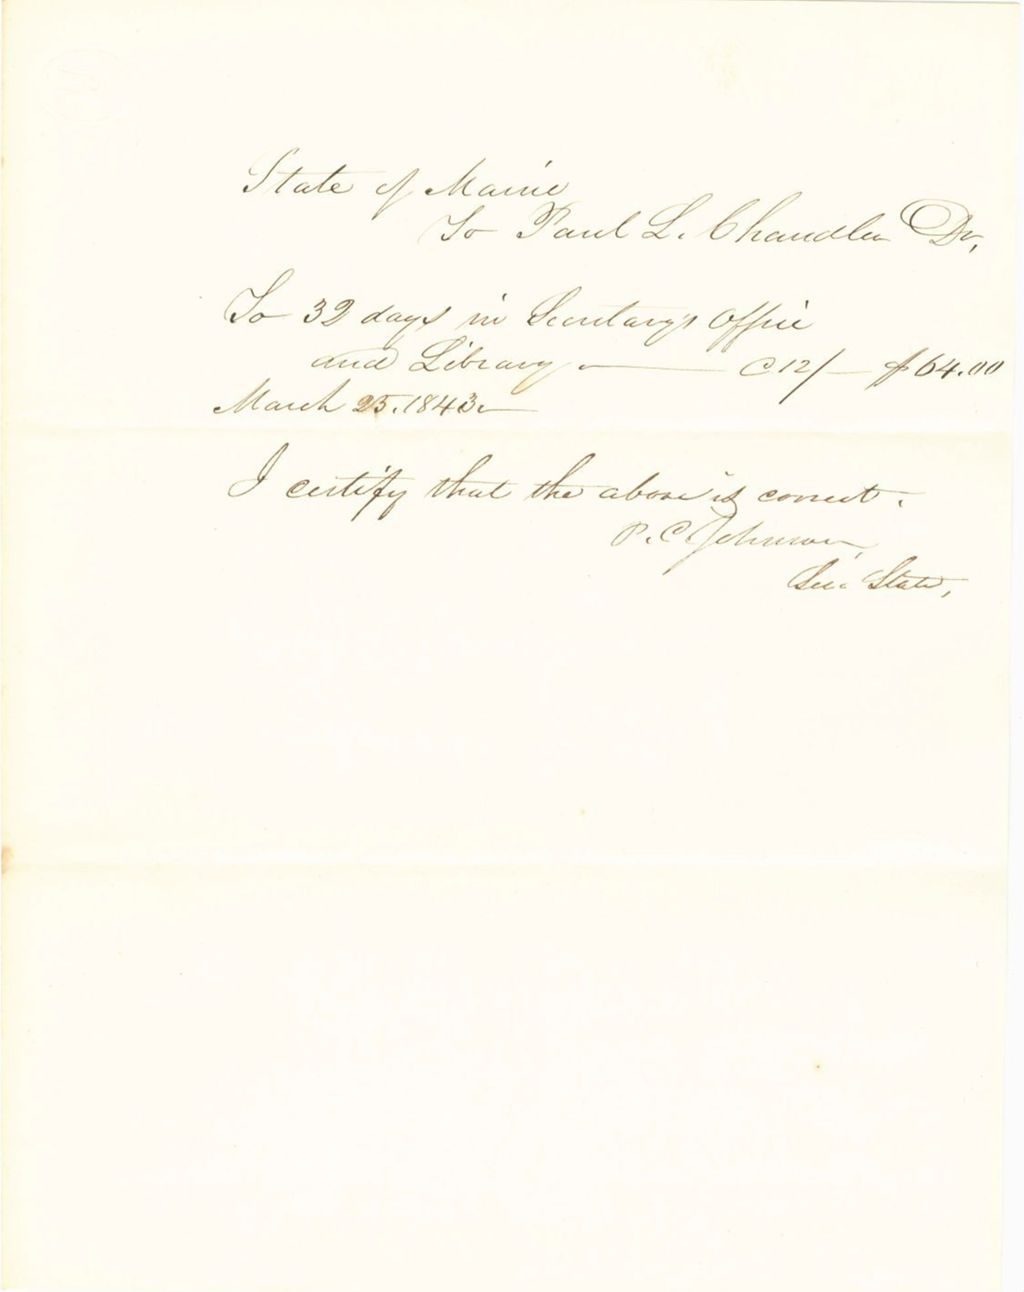 State of Maine
To Paul L. Chandler Dr,
To 32 days in Secretary's Office
and Library — @ 12/ — $64.00
March 25, 1843.
I certify that the above is correct.
P. C. Johnson,
Sec. State,